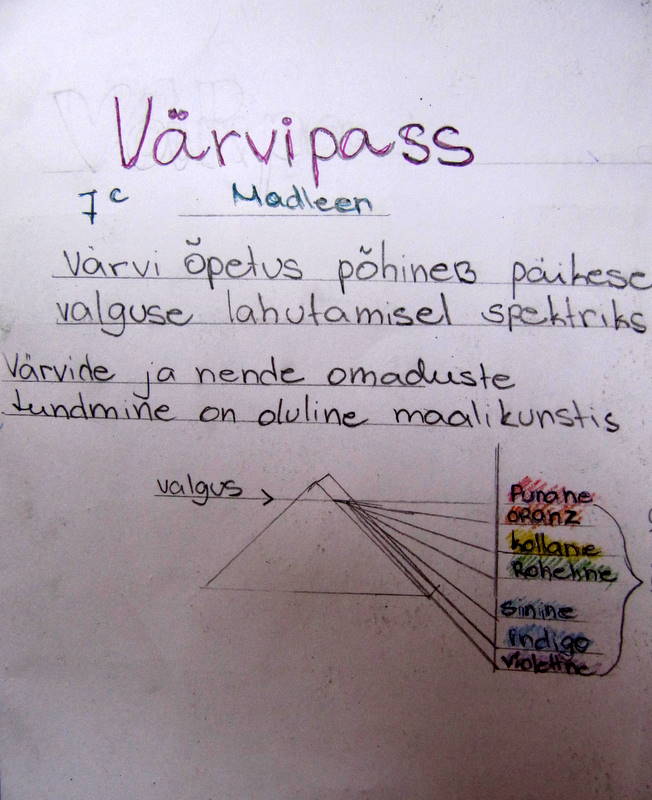 Värvipass
7 c Madleen
Värvi õpetus põhineb päikese
valguse lahutamisel spektriks
Värvide ja nende omaduste
tundmine on oluline maalikunstis
valgus
Punane
ORANZ
kollane
Roheline
Sinine
indigo
violettne